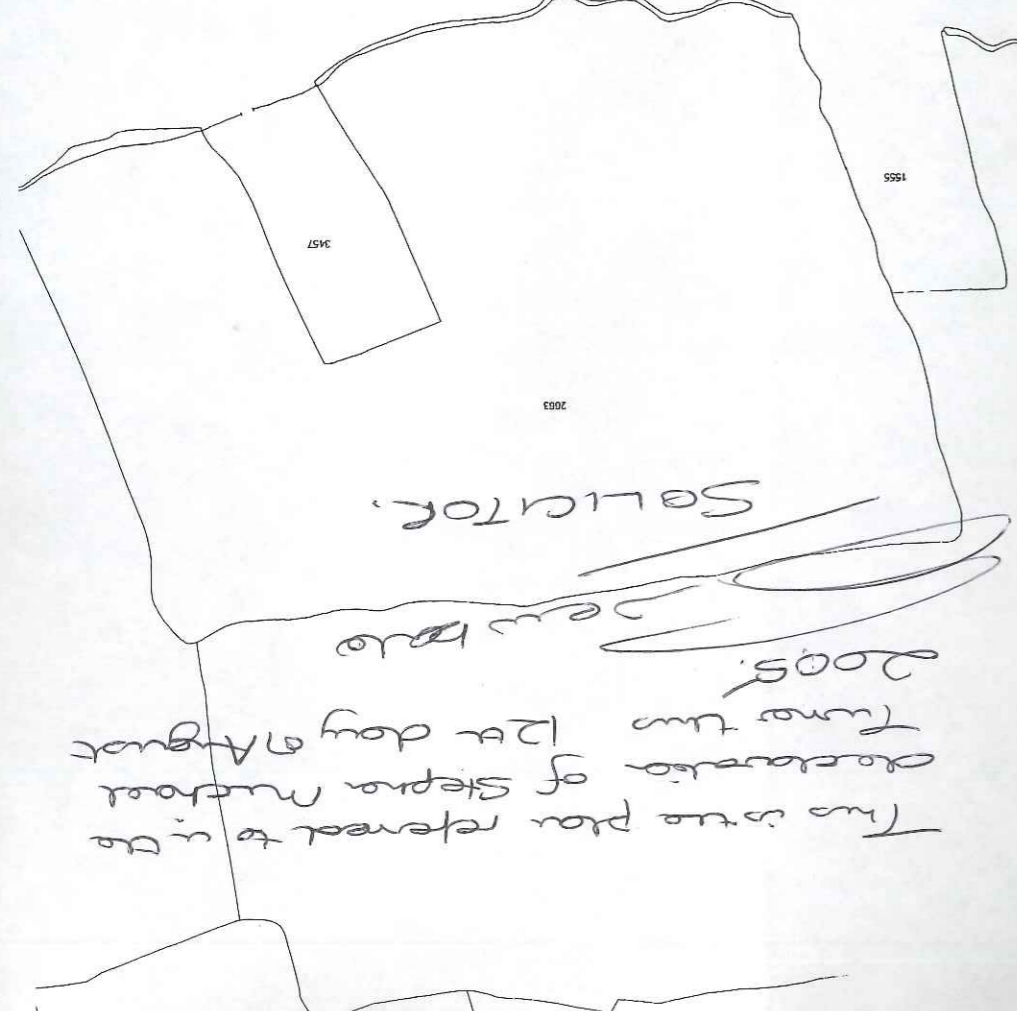 This is the plan referred to in the
declaration of Stephen Michael
Turner this 12th day of August
2005.
SOLICITOR.
3457
1555